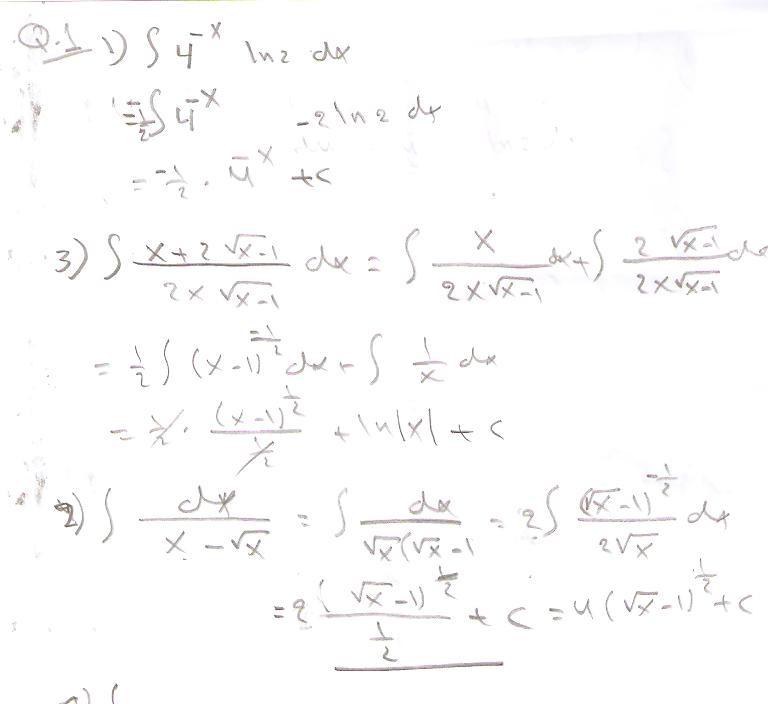 Q.1 1) ∫ 4^-x ln2 dx
= -1/2 ∫ 4^-x -2 ln 2 dx
= -1/2 . 4^-x + c
3) ∫ (x + 2 √x-1) / (2x √x-1) dx = ∫ x / (2x√x-1) dx + ∫ (2 √x-1) / (2x√x-1) dx
= 1/2 ∫ (x-1)^-1/2 dx + ∫ 1/x dx
= 1/2 . (x-1)^1/2 / 1/2 + ln|x| + c
2) ∫ dx / (x - √x) = ∫ dx / (√x (√x-1 = 2 ∫ (√x-1)^-1/2 / (2√x) dx
= 2 (√x-1)^1/2 / 1/2 + c = 4 (√x-1)^1/2 + c